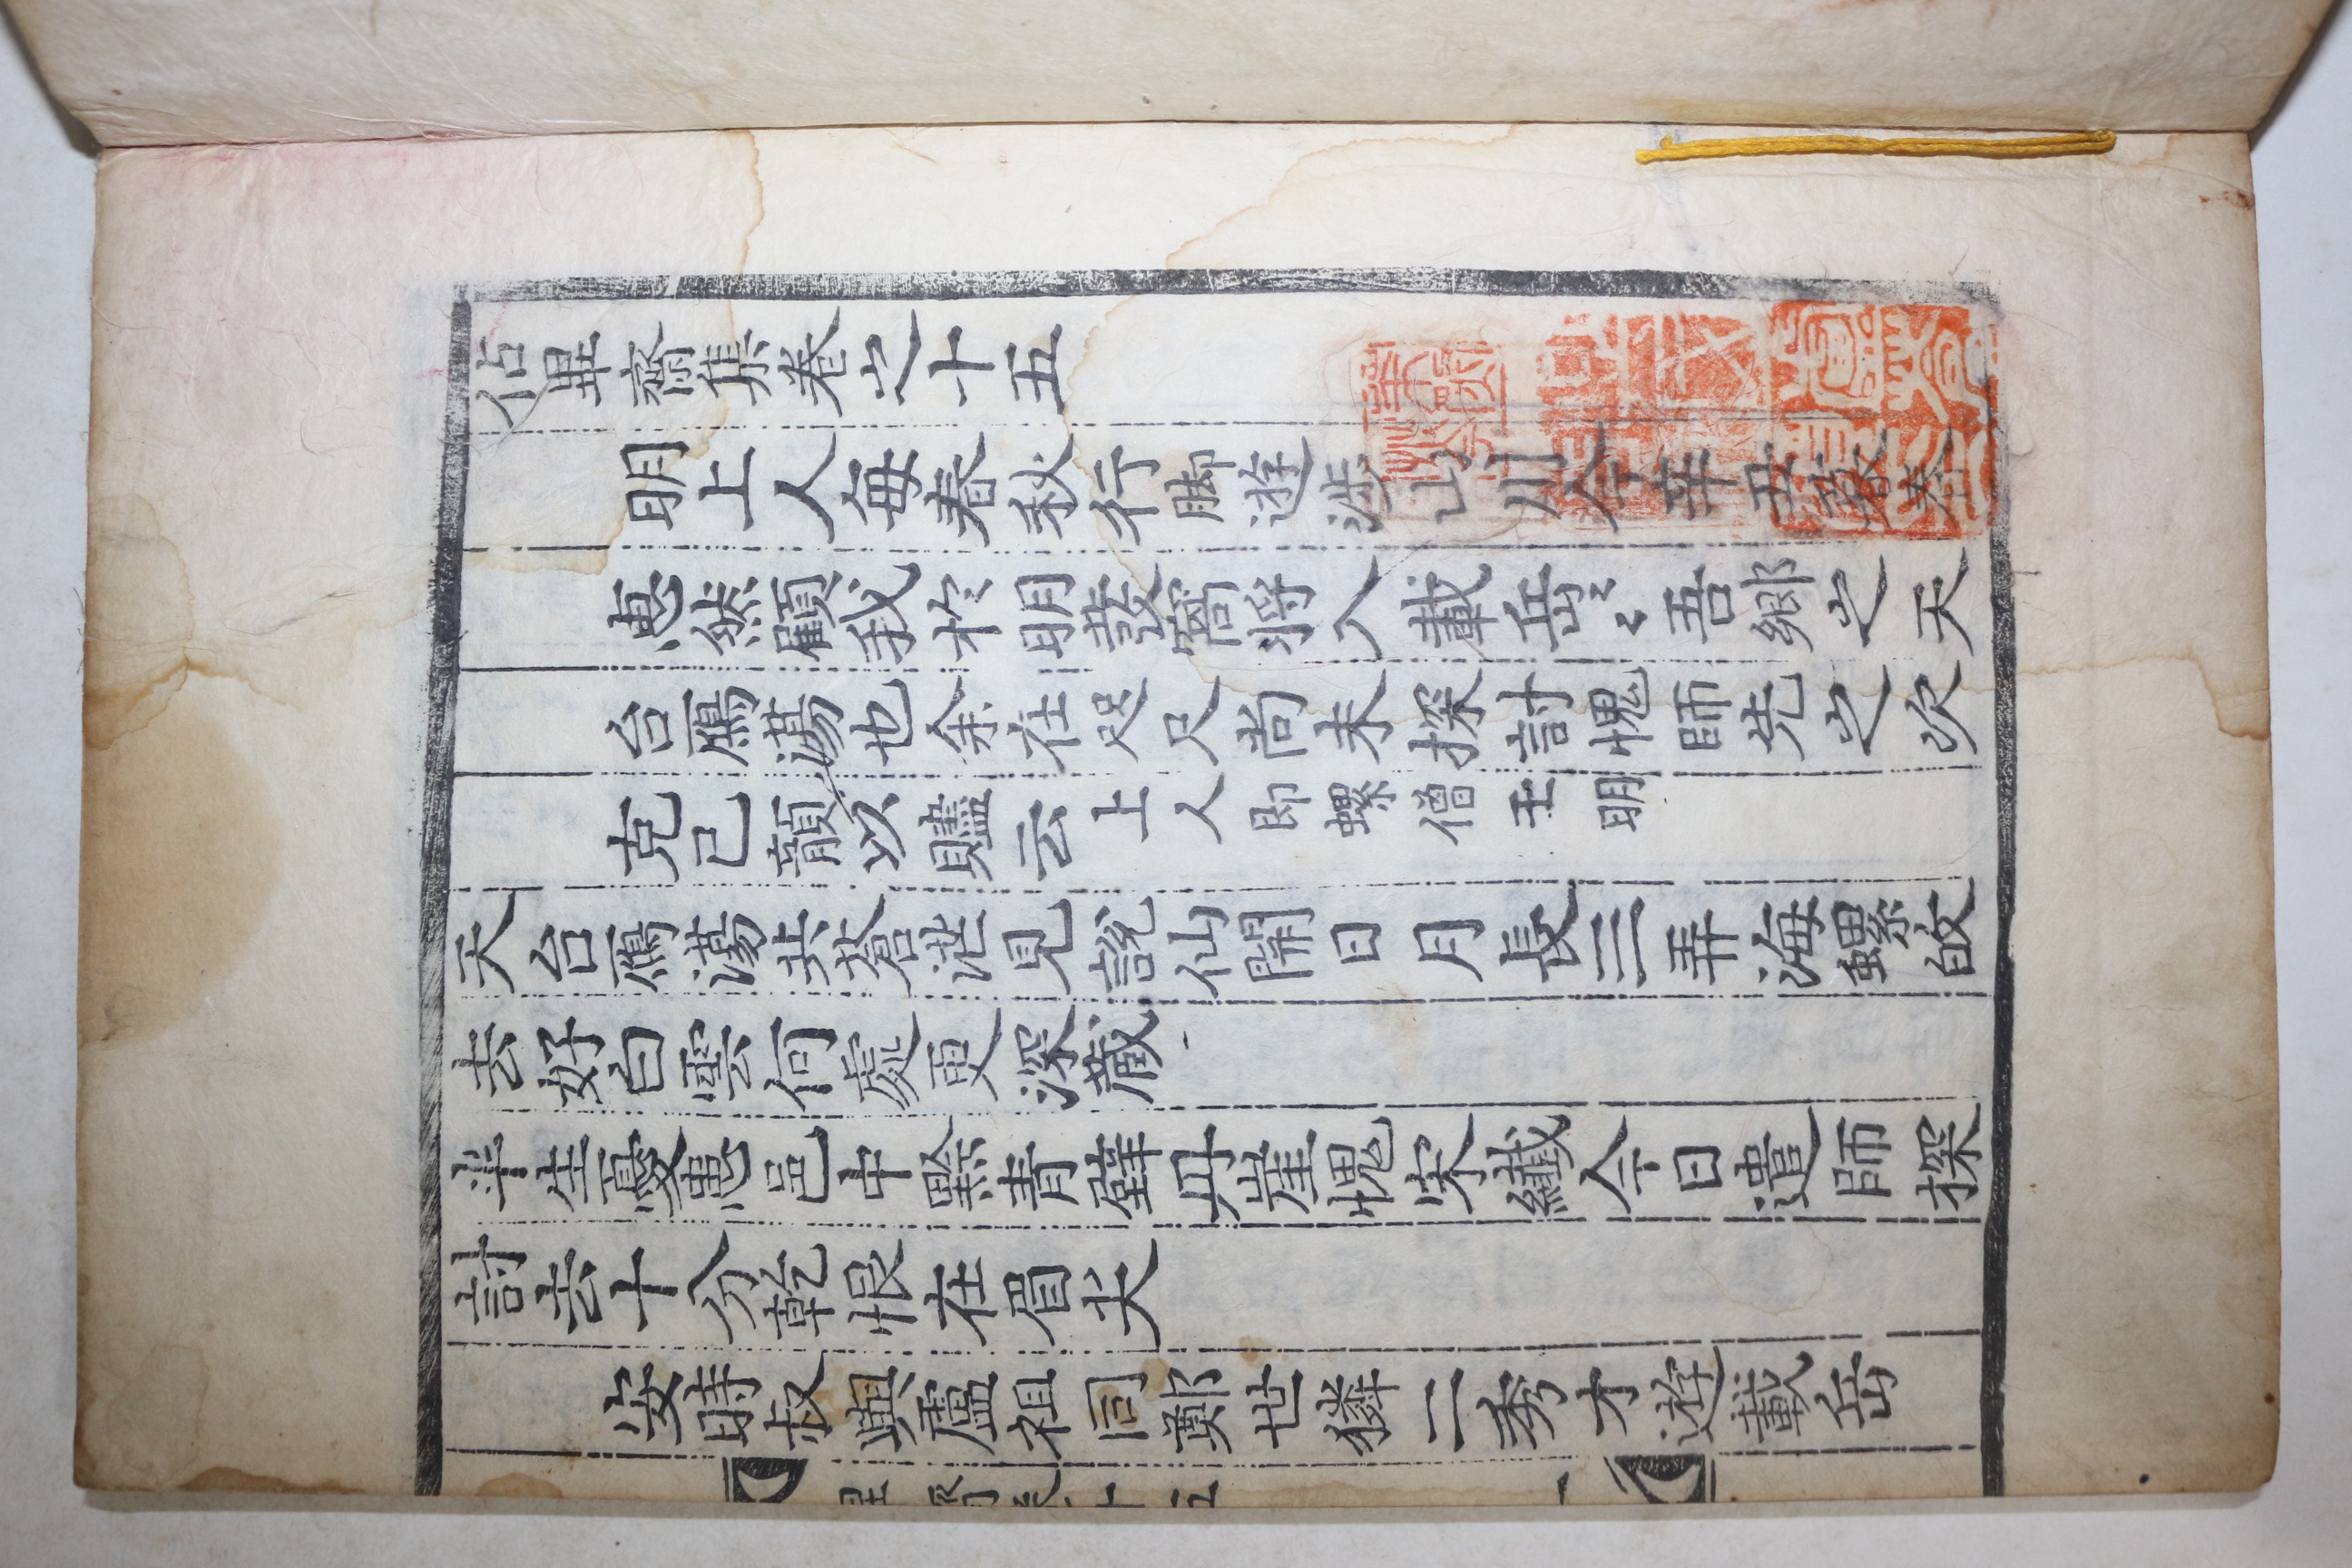 佔畢齋集卷之十五
明上人每春秋行脚遊涉山川今辛丑暮春
恵然顧我於明發窩將入載岳〻〻吾鄉之天
台鴈蕩也余在咫尺尚未探討愧師先之次
克己韻以贐云上人即螺僧玉明
天台鴈蕩共蒼茫見說仙開日月長三弄海螺皈
去好白雲何處更深藏
半生憂患邑中黔青壁丹崖愧宋纖今日遣師探
討去十分乾恨在眉尖
安時叔與盧祖同鄭世獜二秀才遊載岳
畢齋卷十五
一